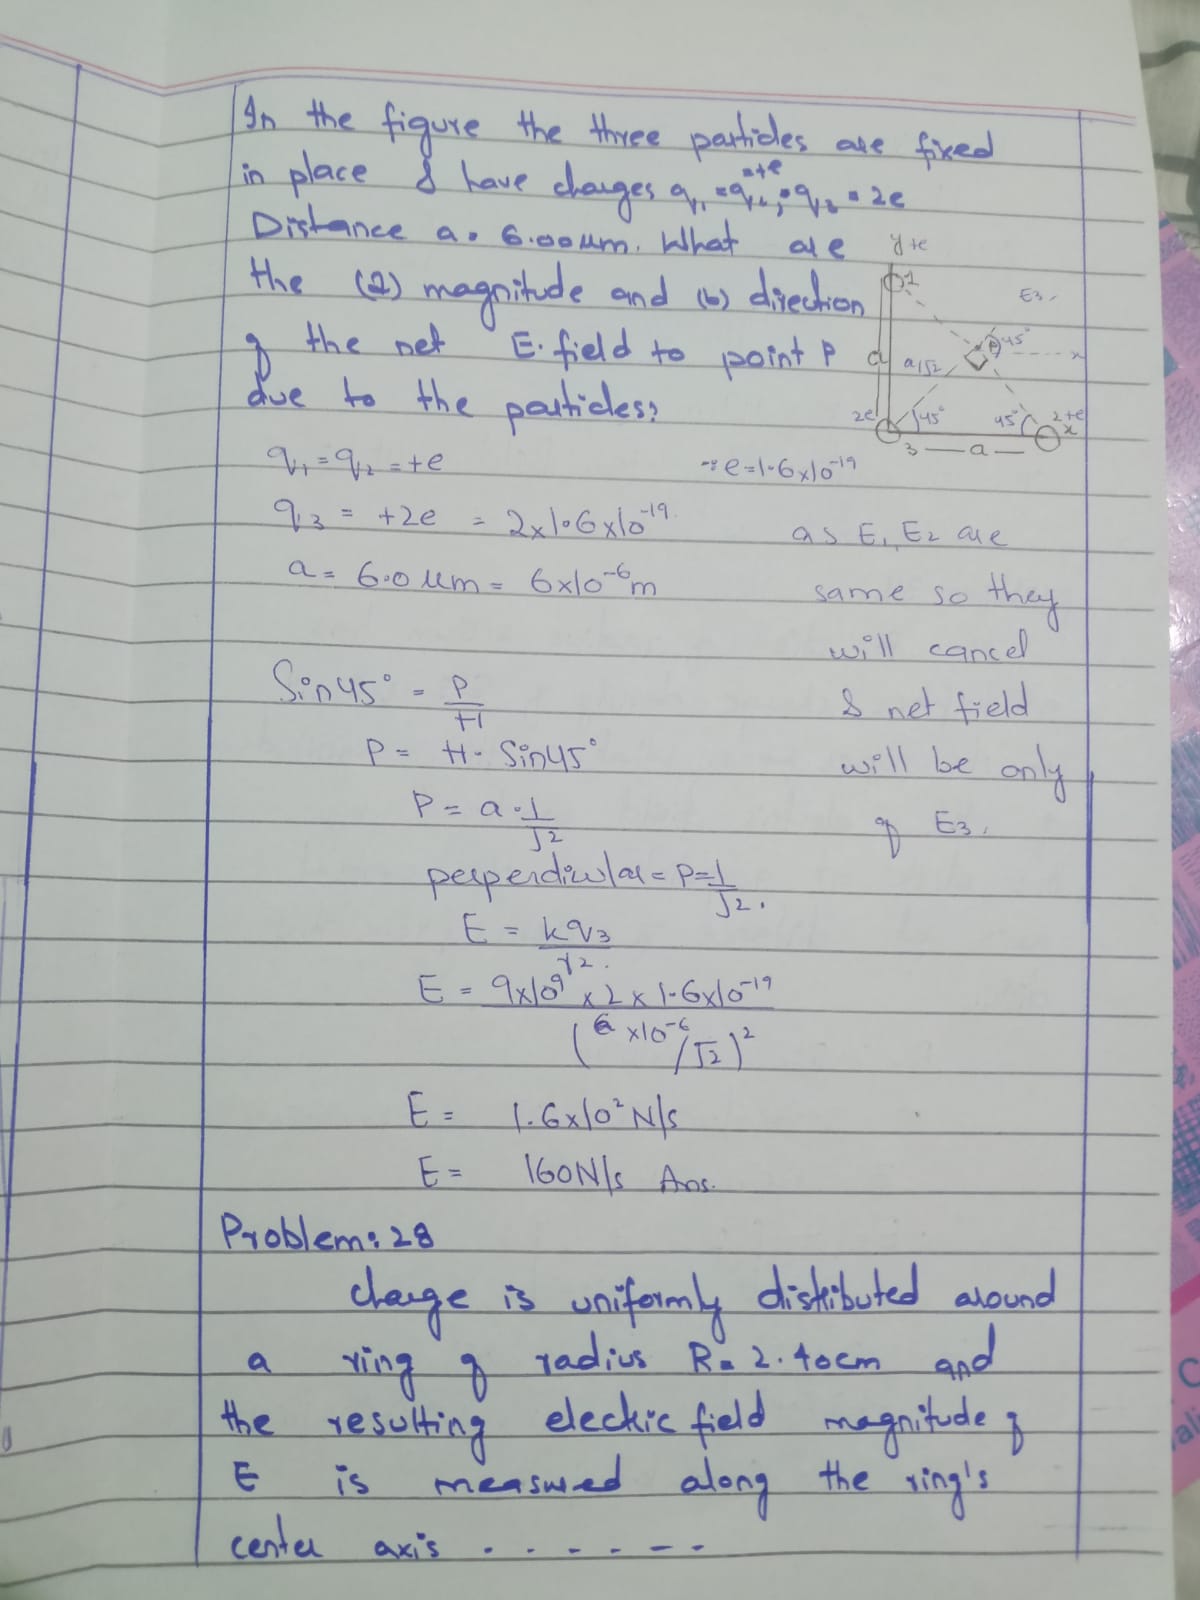 In the figure the three particles are fixed
in place & have charges q₁ = q₂ = +e, q₃ = 2e
Distance a = 6.00 μm. What are
the (a) magnitude and (b) direction
of the net E. field to point P
due to the particles?
y +e
1
E3,
P 45°
x
a
a/√2
2e
45°
45°
2 +e
x
3 — a —
q₁ = q₂ = +e
∵ e = 1.6x10⁻¹⁹
q₃ = +2e = 2x1.6x10⁻¹⁹
a = 6.0 μm = 6x10⁻⁶m
as E₁, E₂ are
same so they
will cancel
& net field
will be only
of E3,
Sin45° = P/H
P = H. Sin45°
P = a . 1/√2
perpendicular = P = 1/√2.
E = kq₃/r².
E = 9x10⁹ x 2 x 1.6x10⁻¹⁹
(6 x10⁻⁶/√2)²
E = 1.6x10² N/s
E = 160N/s Ans.
Problem: 28
Charge is uniformly distributed around
a ring of radius R = 2.40cm and
the resulting electric field magnitude of
E is measured along the ring's
center axis . . . . . . .